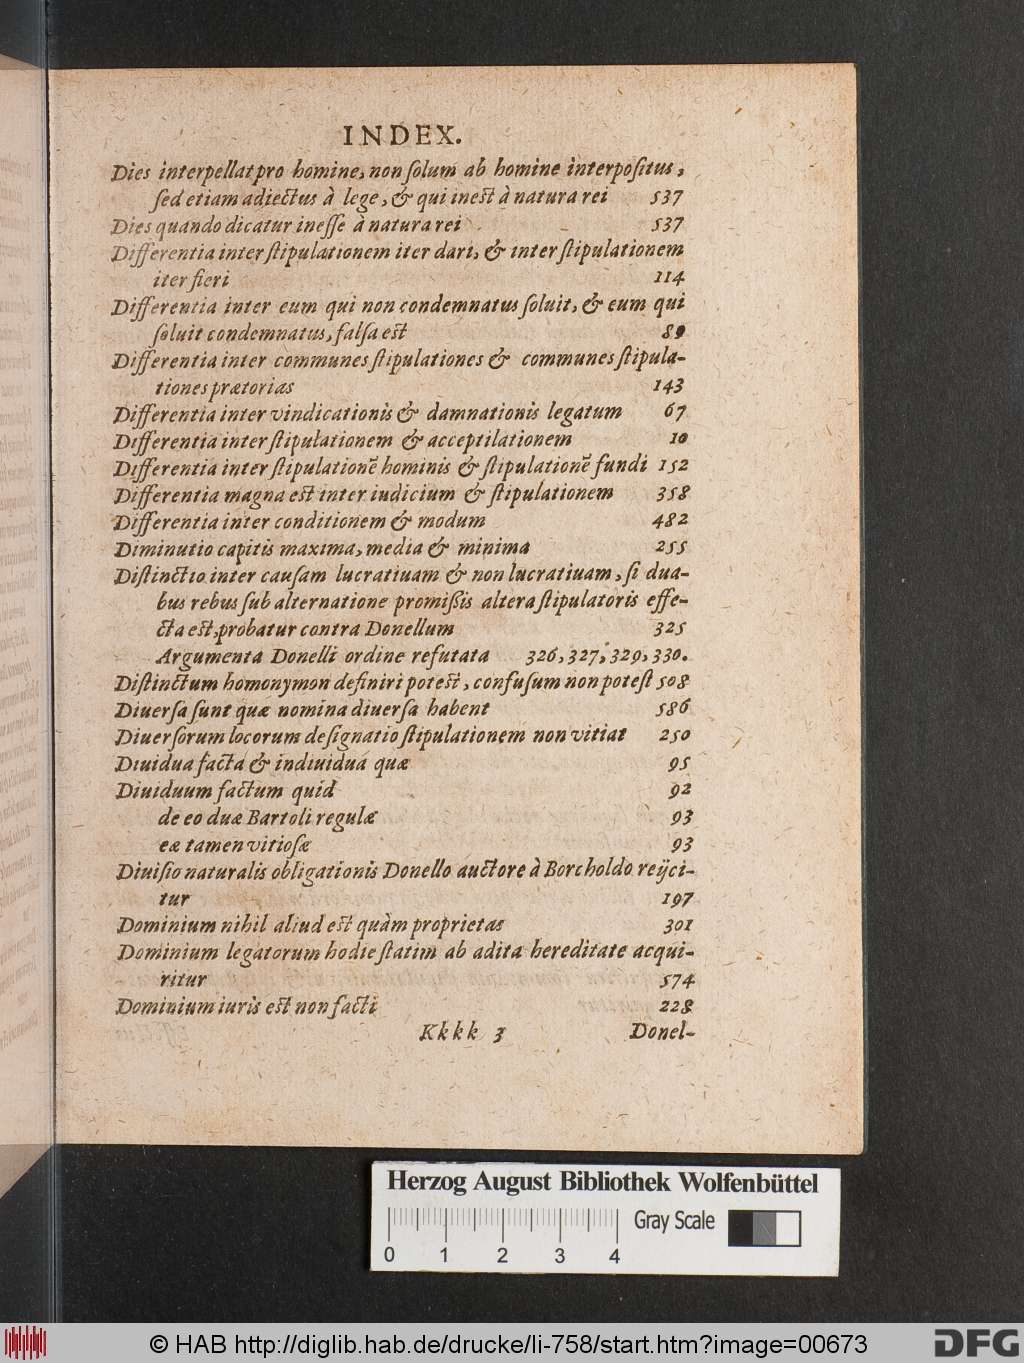 INDEX.
Dies interpellat pro homine, non ſolum ab homine interpoſitus,
ſed etiam adiectus à lege, & qui ineſt à natura rei 537
Dies quando dicatur ineſſe à natura rei 537
Differentia inter ſtipulationem iter dari, & inter ſtipulationem
iter fieri 114
Differentia inter eum qui non condemnatus ſoluit, & eum qui
ſoluit condemnatus, falſa eſt 80
Differentia inter communes ſtipulationes & communes ſtipula-
tiones prætorias 143
Differentia inter vindicationis & damnationis legatum 67
Differentia inter ſtipulationem & acceptilationem 10
Differentia inter ſtipulationē hominis & ſtipulationē fundi 152
Differentia magna eſt inter iudicium & ſtipulationem 358
Differentia inter conditionem & modum 482
Diminutio capitis maxima, media & minima 255
Diſtinctio inter cauſam lucratiuam & non lucratiuam, ſi dua-
bus rebus ſub alternatione promißis altera ſtipulatoris effe-
cta eſt, probatur contra Donellum 325
Argumenta Donelli ordine refutata 326, 327, 329, 330.
Diſtinctum homonymon definiri poteſt, confuſum non poteſt 508
Diuerſa ſunt quæ nomina diuerſa habent 586
Diuerſorum locorum deſignatio ſtipulationem non vitiat 250
Diuidua facta & indiuidua quæ 95
Diuiduum factum quid 92
de eo duæ Bartoli regulæ 93
eæ tamen vitioſæ 93
Diuiſio naturalis obligationis Donello auctore à Borcholdo reijci-
tur 197
Dominium nihil aliud eſt quàm proprietas 301
Dominium legatorum hodie ſtatim ab adita hereditate acqui-
ritur 574
Dominium iuris eſt non facti 228
Kkkk 3 Donel-
Herzog August Bibliothek Wolfenbüttel
Gray Scale
0 1 2 3 4
© HAB http://diglib.hab.de/drucke/li-758/start.htm?image=00673
DFG